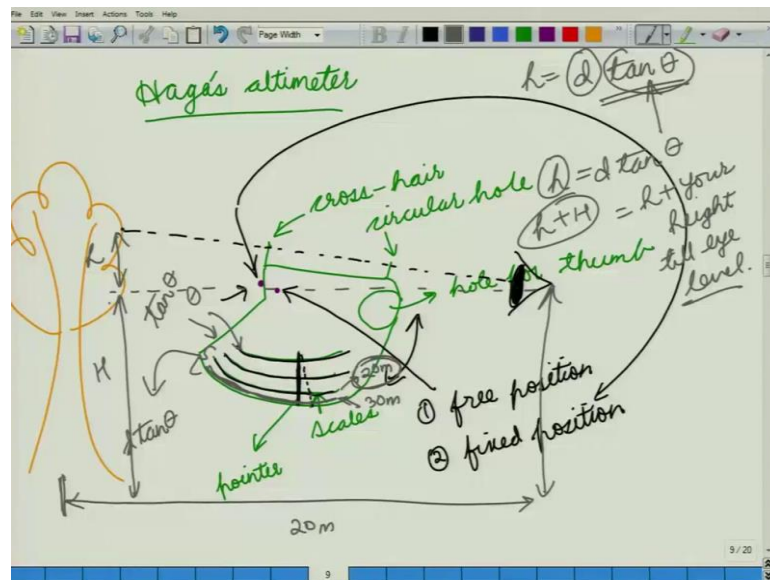 File Edit View Insert Actions Tools Help
Page Width
B I
Haga's altimeter
h = d tanθ
cross-hair
circular hole
h = d tanθ
h+H = h + your height till eye level.
hole for thumb
h
tanθ
θ
H
20m
30m
d tanθ
scales
pointer
① free position
② fixed position
20m
9/20
9